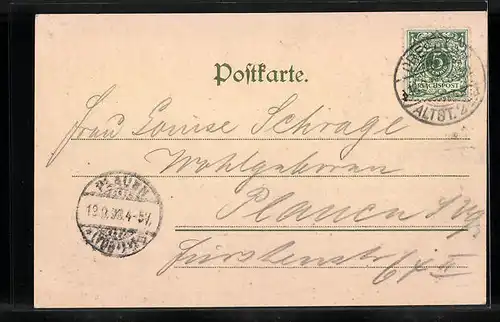 Postkarte.
5
REICHSPOST
ALTST.
Frau Louise Schrage
Wohlgeboren
Plauen i/Vgt
Fürstenstr. 64 II
PLAUEN
19.9.98.4-5N.
(VOGTL.)